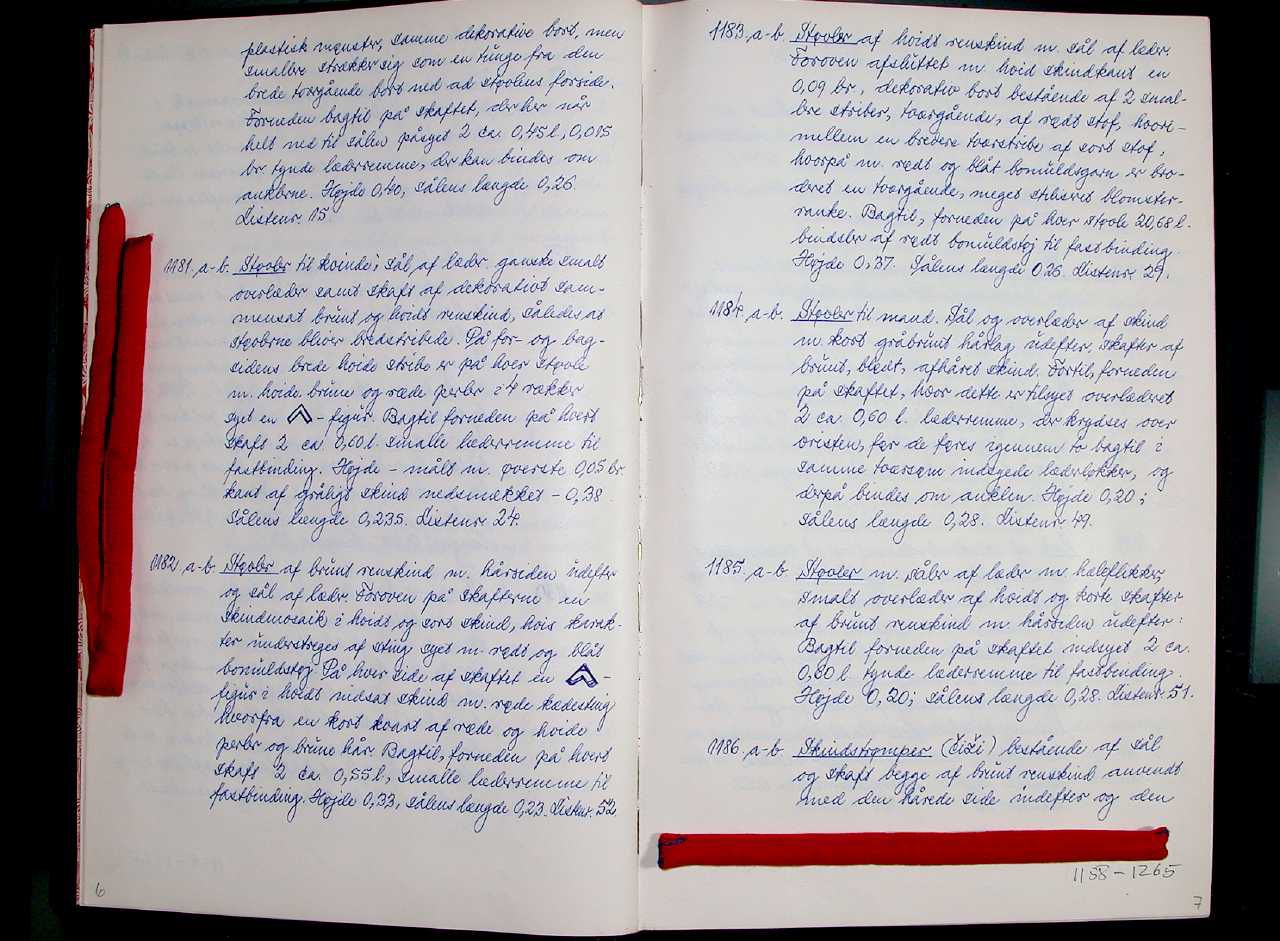 plastisk mønster, samme dekorative bort, men
smallere strækker sig som en tunge fra den
brede tværgående bort ned ad støvlens forside.
Forneden bagtil på skaftet, der her når
helt ned til sålen påsyet 2 ca. 0,45 l, 0,015
br. tynde læderremme, der kan bindes om
anklerne. Højde 0,40, sålens længde 0,26.
Listenr. 15
1181. a-b. Støvler til kvinde; sål af læder. ganske smalt
overlæder samt skaft af dekorativt sam-
mensat brunt og hvidt renskind, således at
støvlerne bliver bredstribede. På for- og bag-
sidens brede hvide stribe er på hver støvle
m. hvide brune og røde perler i 4 rækker
syet en - figur. Bagtil forneden på hvert
skaft 2 ca. 0,60 l. smalle læderremme til
fastbinding. Højde - målt m. øverste 0,05 br.
kant af gråligt skind nedsmøkket - 0,38.
Sålens længde 0,235. Listenr. 24.
1182. a-b. Støvler af brunt renskind m. hårsiden udefter
og sål af læder. Foroven på skafterne en
skindmosaik i hvidt og sort skind, hvis karak-
ter understreges af sting syet m. rødt og blåt
bomuldstøj. På hver side af skaftet en -
figur i hvidt indsat skind m. røde kædesting
hvorfra en kort kvast af røde og hvide
perler og brune hår. Bagtil, forneden på hvert
skaft 2 ca. 0,55 l, smalle læderremme til
fastbinding. Højde 0,33, sålens længde 0,23. Listenr. 52.
6
1183. a-b. Støvler af hvidt renskind m. sål af læder.
Foroven afsluttet m. hvid skindkant en
0,09 br., dekorativ bort bestående af 2 smal-
lere striber, tværgående, af rødt stof, hvori-
mellem en bredere tværstribe af sort stof,
hvorpå m. rødt og blåt bomuldsgarn er bro-
deret en tværgående, meget stiliseret blomster-
ranke. Bagtil, forneden på hver støvle 2 0,68 l.
bindsler af rødt bomuldstøj til fastbinding.
Højde 0,37. Sålens længde 0,26. Listenr. 29.
1184. a-b. Støvler til mand. Sål og overlæder af skind
m. kort gråbrunt hårlag udefter, skafter af
brunt, blødt, afhåret skind. Fortil, forneden
på skaftet, hvor dette er tilsyet overlæderet
2 ca. 0,60 l. læderremme, der krydses over
vristen, før de føres igennem to bagtil i
samme tværsøm indsyede læderløkker, og
derpå bindes om anklen. Højde 0,20;
sålens længde 0,28. Listenr. 49.
1185. a-b. Støvler m. såler af læder m. hæleflikker,
smalt overlæder af hvidt og korte skafter
af brunt renskind m. hårsiden udefter:
Bagtil forneden på skaftet indsyet 2 ca.
0,80 l. tynde læderremme til fastbinding.
Højde 0,20; sålens længde 0,28. Listenr. 51.
1186. a-b. Skindstrømper (čiži) bestående af sål
og skaft begge af brunt renskind anvendt
med den hårede side indefter og den
1158 - 1265
7